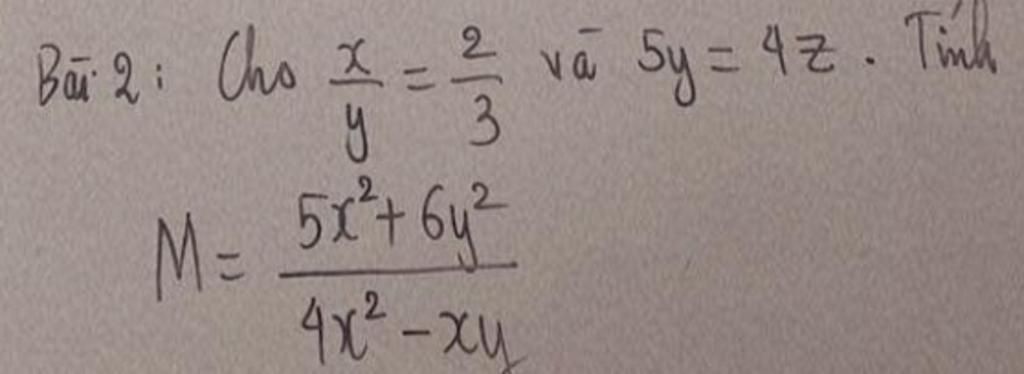 Bài 2: Cho x/y = 2/3 và 5y = 4z. Tính
M = (5x² + 6y²)/(4x² - xy)